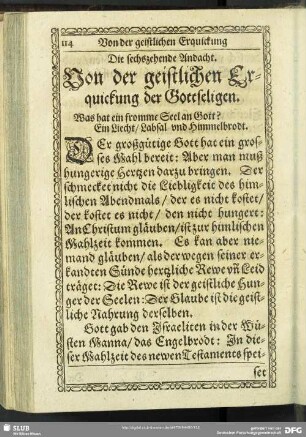 114 Von der geistlichen Erquickung
Die sechszehende Andacht.
Von der geistlichen Er-
quickung der Gottseligen.
Was hat ein fromme Seel an Gott?
Ein Liecht/ Labsal vnd Himmelbrodt.
DEr großgütige Gott hat ein gros-
ses Mahl bereit: Aber man muß
hungerige Hertzen darzu bringen. Der
schmecket nicht die Liebligkeit des him-
lischen Abendmals/ der es nicht kostet/
der kostet es nicht/ den nicht hungert:
An Christum gläuben/ ist zur himlischen
Mahlzeit kommen. Es kan aber nie-
mand gläuben/ als der wegen seiner er-
kandten Sünde hertzliche Rewe vñ Leid
träget: Die Rewe ist der geistliche Hun-
ger der Seelen: Der Glaube ist die geist-
liche Nahrung derselben.
Gott gab den Israeliten in der Wü-
sten Manna/ das Engelbrodt: In die-
ser Mahlzeit des newen Testaments spei-
set
SLUB
Wir führen Wissen.